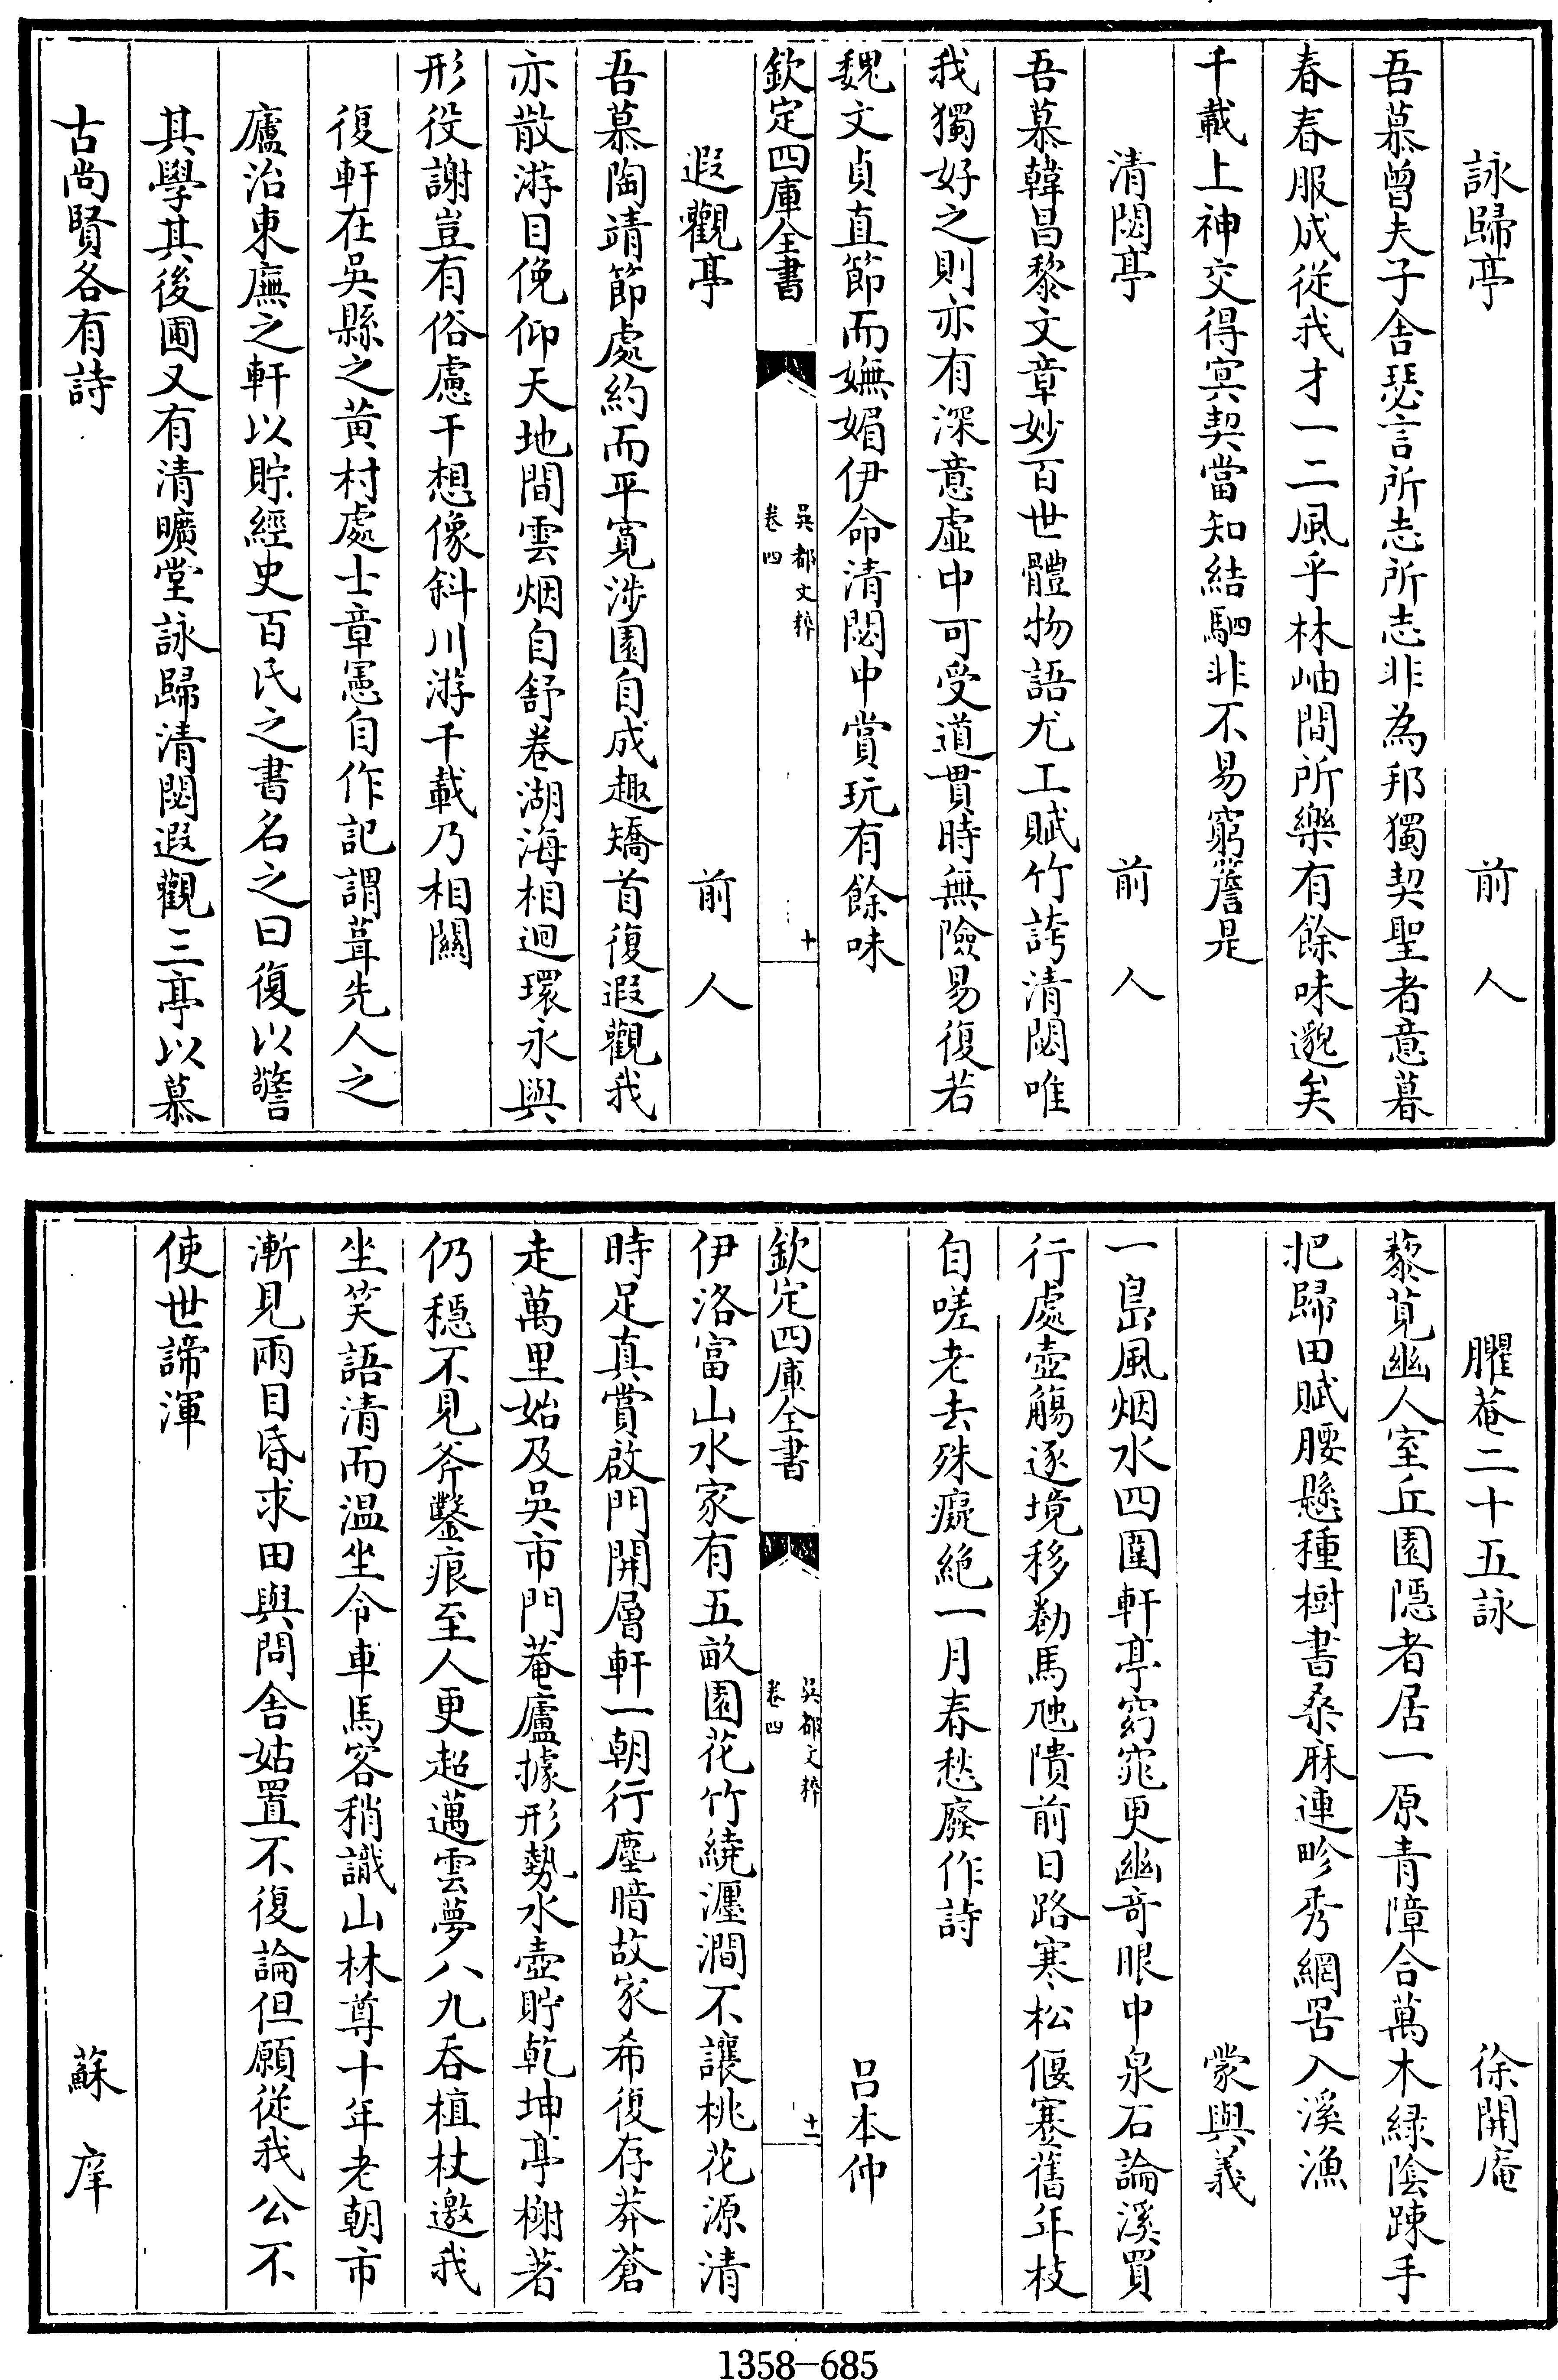 詠歸亭 前人
吾慕曾夫子舍瑟言所志所志非為邦獨契聖者意暮
春春服成從我才一二風乎林岫間所樂有餘味邈矣
千載上神交得冥契當知結駟非不易窮簷是
清閟亭 前人
吾慕韓昌黎文章妙百世體物語尤工賦竹誇清閟唯
我獨好之則亦有深意虛中可受道貫時無險易復若
魏文貞直節而嫵媚伊命清閟中賞玩有餘味
欽定四庫全書 吳都文粹 卷四 十
遐觀亭 前人
吾慕陶靖節處約而平寬涉園自成趣矯首復遐觀我
亦散游目俛仰天地間雲烟自舒卷湖海相迴環永與
形役謝豈有俗慮干想像斜川游千載乃相關
復軒在吳縣之黃村處士章憲自作記謂葺先人之
廬治東廡之軒以貯經史百氏之書名之曰復以警
其學其後圃又有清曠堂詠歸清閟遐觀三亭以慕
古尚賢各有詩
臞菴二十五詠 徐開庵
藜莧幽人室丘園隱者居一原青障合萬木緑陰踈手
把歸田賦腰懸種樹書桑麻連畛秀網罟入溪漁
蒙與義
一島風烟水四圍軒亭窈窕更幽奇眼中泉石論溪買
行處壺觴逐境移勸馬虺隤前日路寒松偃蹇舊年枝
自嗟老去殊癡絶一月春愁廢作詩
呂本仲
欽定四庫全書 吳都文粹 卷四 十一
伊洛富山水家有五畝園花竹繞瀍澗不讓桃花源清
時足真賞啟門開層軒一朝行塵暗故家希復存莽蒼
走萬里始及吳市門菴廬據形勢水壺貯乾坤亭榭著
仍穩不見斧鑿痕至人更超邁雲夢八九吞植杖邀我
坐笑語清而温坐令車馬客稍識山林尊十年老朝市
漸見兩目昏求田與問舍姑置不復論但願從我公不
使世諦渾
蘇庠
1358-685